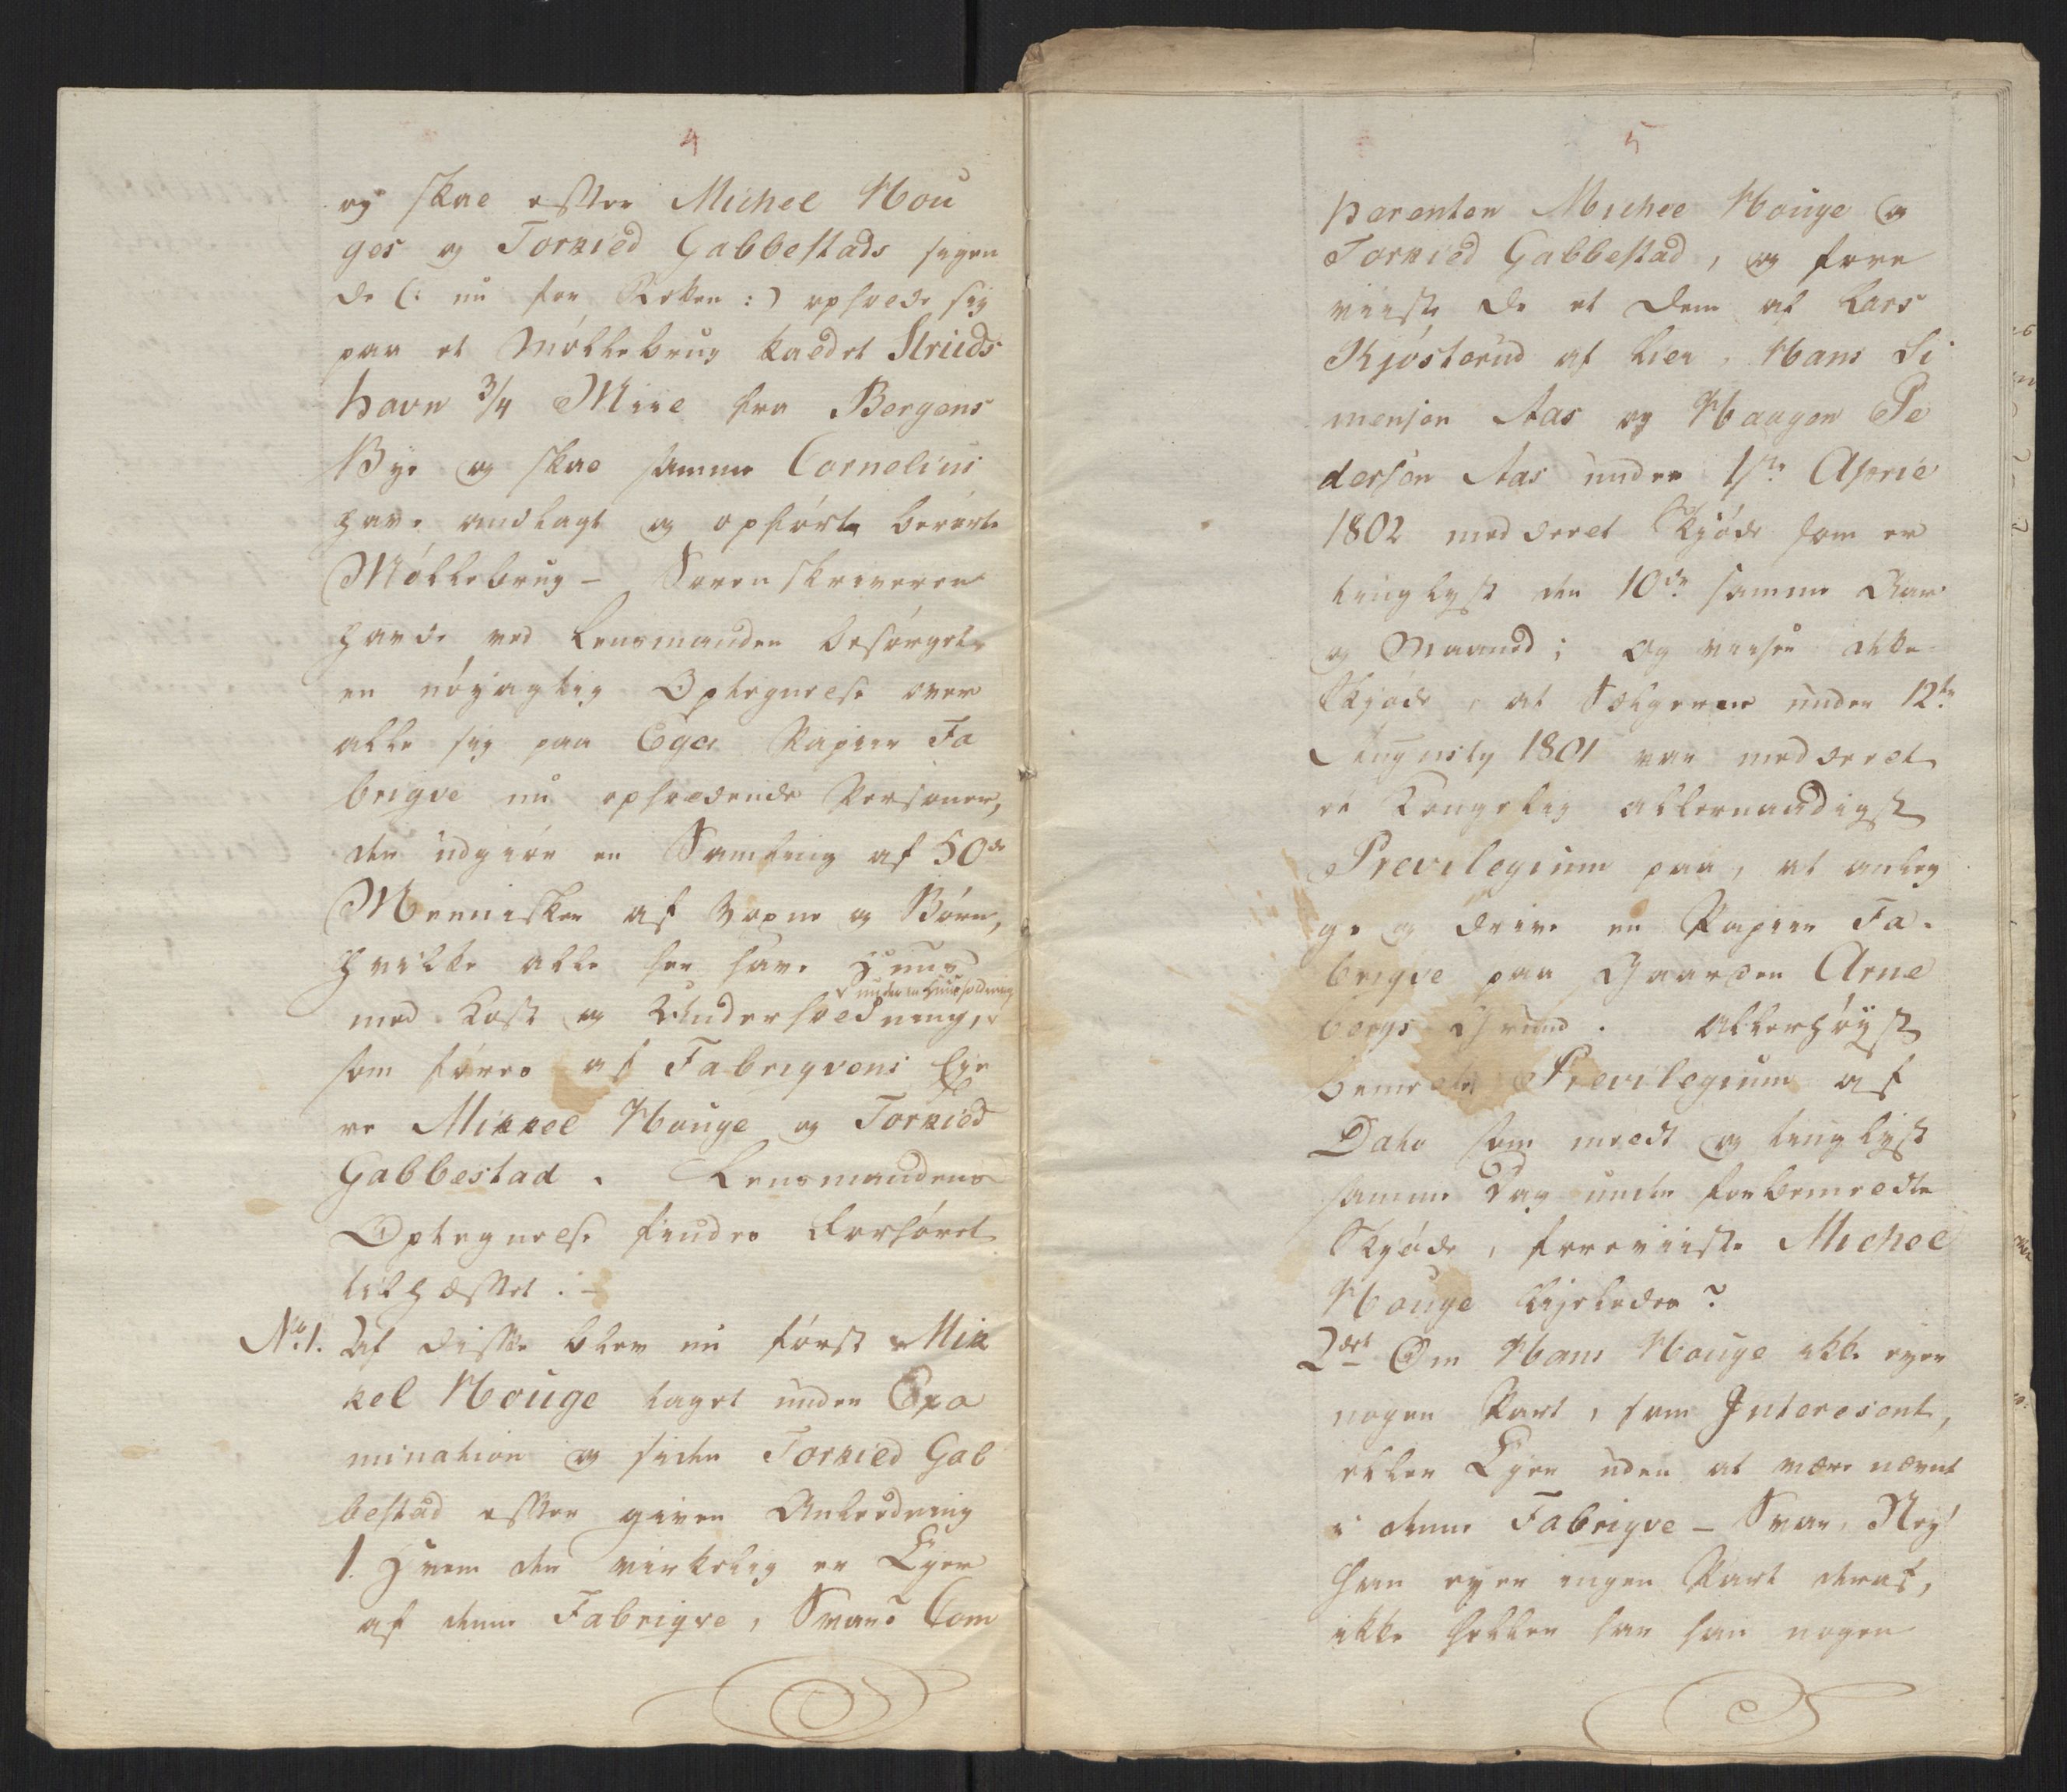 4
og skal efter Michel Hou
ges og Torkild Gabbestads sigen
de (: nu for Retten :) opholde sig
paa et Møllebrug kaldet Striids
havn 3/4 Miil fra Bergens
Bye og skal samme Cornelius
have anlagt og opført berørte
Møllebrug – Sorenskriveren
havde ved Lensmanden besørget
en nøyagtig Optegnelse over
alle sig paa Eger Papiir Fa
briqve nu opholdende Personer,
der udgiør en Samling af 50de
Mennisker af Voxne og Børn,
hvilke alle her have Huus
under en Huusholdning
med Kost og Underholdning,
som føres af Fabriqvens Eye
re Mikkel Houge og Torkild
Gabbestad. Lensmandens
Optegnelse findes Forhøret
tilhæftet. –
No. 1. Af disse blev nu først Mik
kel Houge taget under Exa
mination og siden Torkild Gab
bestad efter given Anledning
1. Hvem der virkelig er Eyer
af denne Fabriqve, Svar: Com
5
parenten Michel Houge og
Torkild Gabbestad, og fore
viiste de et dem af Lars
Kjøsterud af Lier, Hans Si
mensen Aas og Haagen Pe
dersen Aas under 1ste April
1802 meddeelt Skjøde som er
tinglyst den 10de samme Aar
og Maaned; og viiser dette
Skjøde, at Sælgerne under 12te
Augusty 1801 var meddeelt
et Kongelig allernaadigst
Previlegium paa, at anleg
ge og drive en Papiir Fa-
briqve paa Gaarden Arne
bergs Grund. Allerhøyst
bemeldte Previlegium af
Dato som meldt og tinglyst
samme Dag under forbemeldte
Skjøde, foreviiste Michel
Houge ligeledes?
2det Om Hans Houge ikke eyer
nogen Part, som Interesent,
eller Eyer uden at være nævnt
i denne Fabriqve – Svar, Ney!
han eyer ingen Part deraf,
ikke heller har han nogen